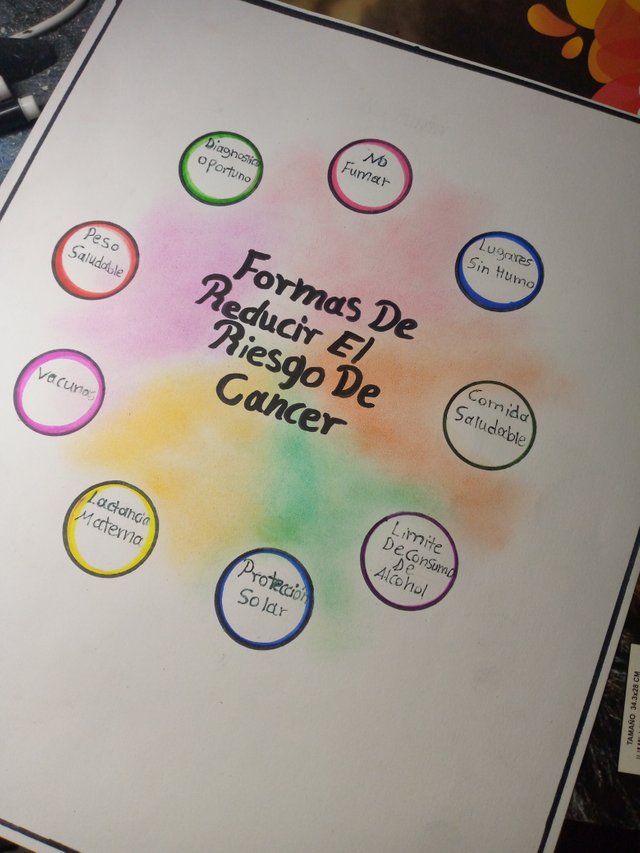 Formas De
Reducir El
Riesgo De
Cancer
No
Fumar
Lugares
Sin Humo
Comida
Saludable
Limite
De Consumo
De
Alcohol
Protección
Solar
Lactancia
Materna
Vacunas
Peso
Saludable
Diagnostico
Oportuno
TAMAÑO 34.3x28 CM